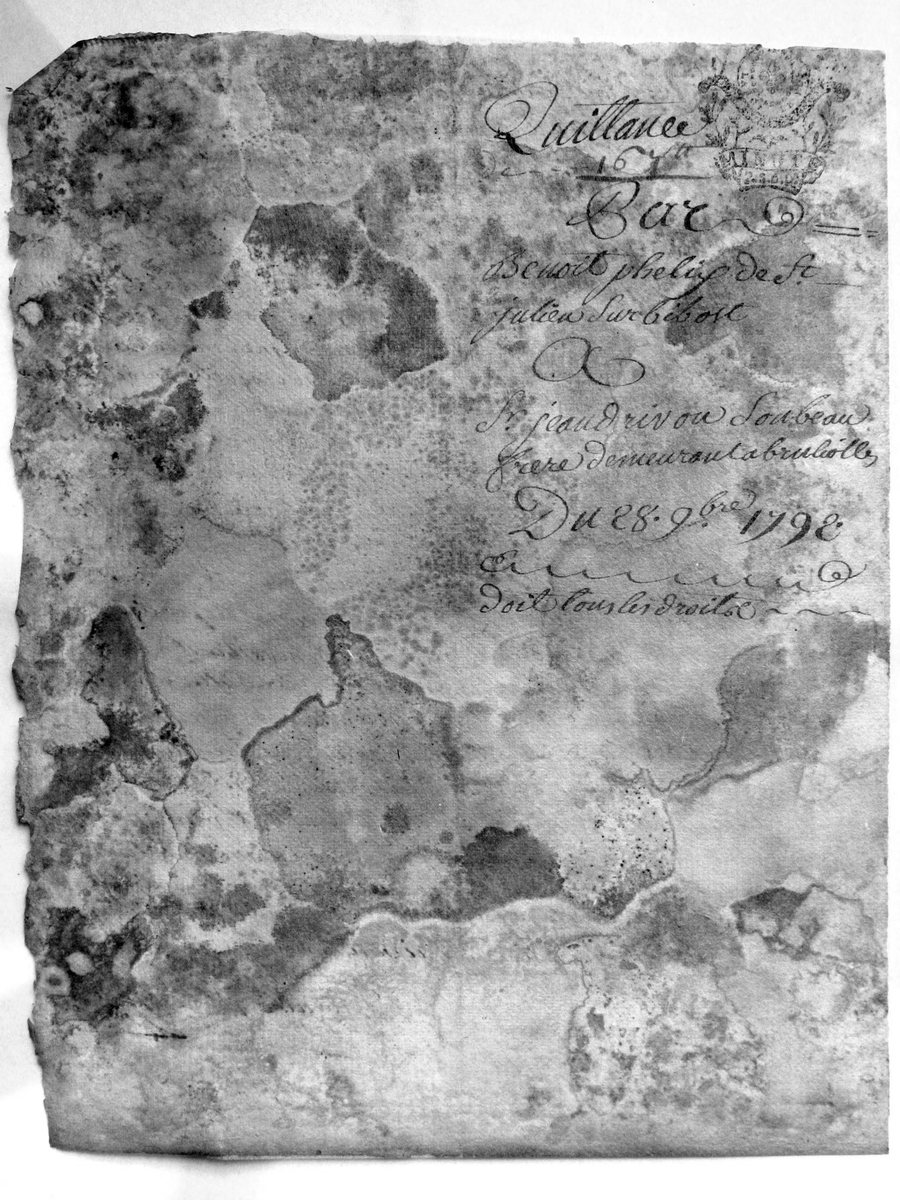 Quittance
de 167
MINUTE
Par
Benoit phelip de St
julien Surbibost
A
Sr jean drivon Sonbeau
frere demeurant abruliolles
Du 28. 9bre 1792.
doit tous les droits